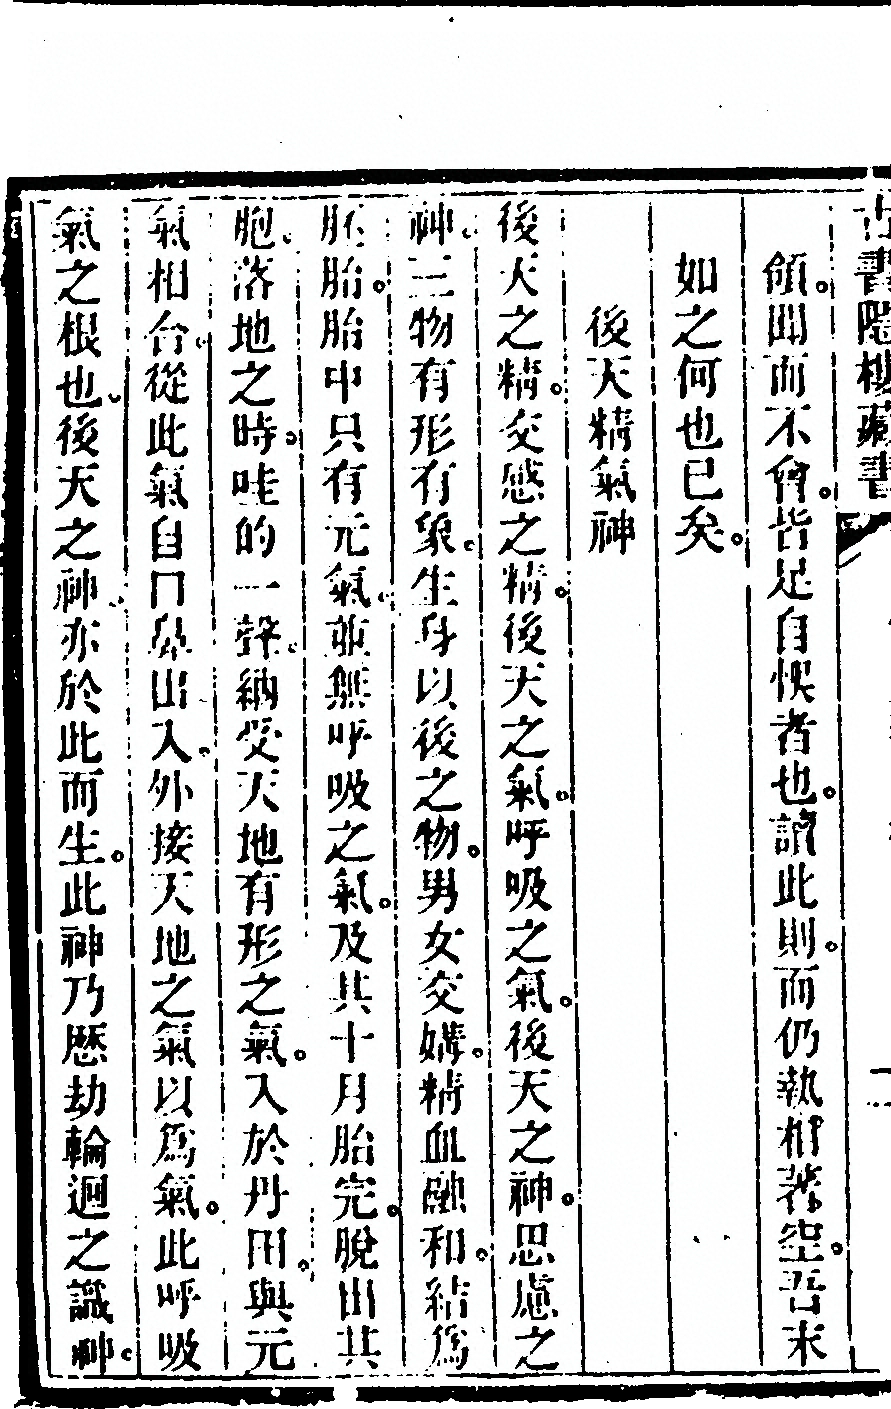 古書隱樓藏書
領聞而不會。皆是自悞者也。讀此則。而仍執相著空。吾末
如之何也已矣。
後天精氣神
後天之精。交感之精。後天之氣。呼吸之氣。後天之神。思慮之
神。三物有形有象。生身以後之物。男女交媾。精血融和。結爲
胚胎。胎中只有元氣。並無呼吸之氣。及其十月胎完。脫出其
胞。落地之時。哇的一聲。納受天地有形之氣。入於丹田。與元
氣相合。從此氣自口鼻出入。外接天地之氣以爲氣。此呼吸
氣之根也。後天之神。亦於此而生。此神乃歷劫輪迴之識神。